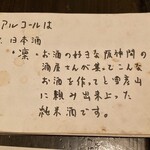 アルコールは
日本酒
・凛・お酒の好きな阪神間の
酒屋さんが集ってこんな
お酒を作ってと雲彦山
に頼み出来上った
純米酒です。